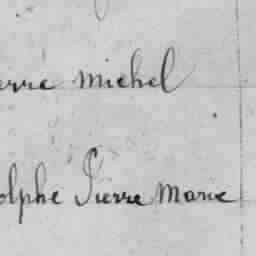 erre Michel
olphe Pierre Marie